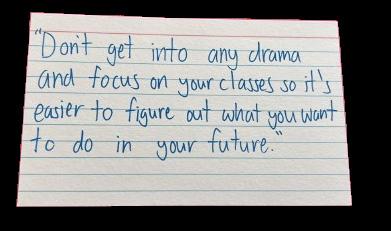 "Don't get into any drama
and focus on your classes so it's
easier to figure out what you want
to do in your future."